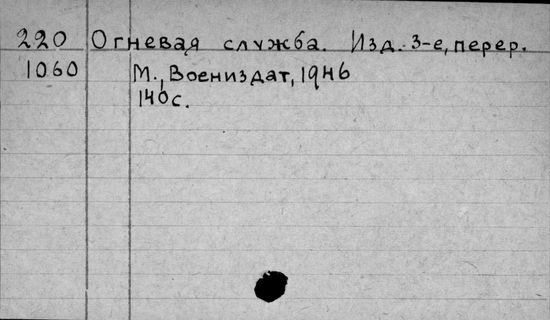 220 Огневая служба. Изд. 3-е, перер.
1060 М., Воениздат, 1946
140с.